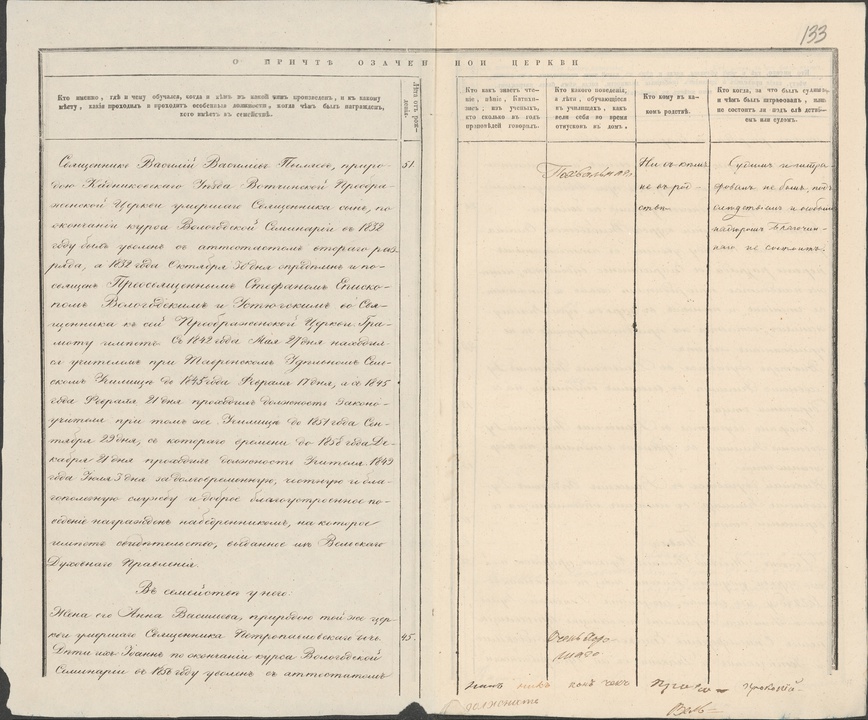 133
О ПРИЧТѢ ОЗНАЧЕННОЙ ЦЕРКВИ
Кто именно, гдѣ и чему обучался, когда и кѣмъ въ какой чинъ произведенъ, и къ какому
мѣсту, какія проходилъ и проходитъ особенныя должности, когда чѣмъ былъ награжденъ,
кого имѣетъ въ семействѣ.
Лѣта отъ рож-
денія.
Кто какъ знаетъ чте-
ніе, пѣніе, Катихи-
зисъ, изъ ученыхъ,
кто сколько въ годъ
проповѣдей говорилъ.
Кто какого поведенія,
а дѣти, обучающіеся
въ училищахъ, какъ
вели себя во время
отпусковъ въ домъ.
Кто кому въ ка-
комъ родствѣ.
Кто когда, за что былъ судимъ,
и чѣмъ былъ штрафованъ, или
не состоитъ ли подъ слѣдстві-
емъ или судомъ.
Священникъ Василій Васильевъ
дою Кадниковскаго Уѣзда Вотчинской Преобра-
женской Церкви умершаго Священника сынъ, по
окончаніи курса Вологодской Семинаріи въ 1832
году былъ уволенъ съ аттестатомъ втораго раз-
ряда, а 1832 года Октября 30 дня опредѣленъ и по-
священъ Преосвященнымъ Стефаномъ Еписко-
помъ Вологодскимъ и Устюжскимъ во Свя-
щенника къ сей Преображенской Церкви. Гра-
моту имѣетъ. Съ 1842 года Мая 27 дня находил-
ся учителемъ при Удѣльномъ Сель-
скомъ Училищѣ до 1845 года Февраля 17 дня, а съ 1845
года Февраля 21 дня проходилъ должность Законо-
учителя при томъ же Училищѣ до 1851 года Сен-
тября 29 дня, съ котораго времени до 1858 года Де-
кабря 21 дня проходилъ должность Учителя. 1849
года Іюля 3 дня за долговременную, честную и бла-
гополезную службу и доброе благоустроенное по-
веденіе награжденъ набедренникомъ, на которое
имѣетъ свидѣтельство, выданное изъ Вельскаго
Духовнаго Правленія.
51.
Похвальнаго
Ни съ кѣмъ
не въ род-
ствѣ.
Судимъ и штра-
фованъ не былъ, подъ
слѣдствіемъ и особымъ
надзоромъ благочин-
наго не состоитъ.
Въ семействѣ у него:
Жена его Анна Васильева, природою той же цер-
кви умершаго Священника Петропавловскаго дочь.
Дѣти ихъ Іоаннъ по окончаніи курса Вологодской
Семинаріи въ 1856 году уволенъ съ аттестатомъ
45.
Очень хоро-
шаго